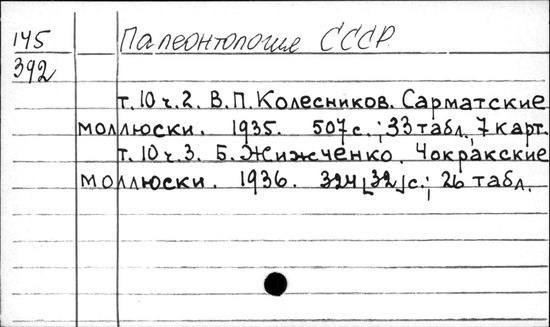 145 Палеонтология СССР
392
т.10 ч.2. В.П.Колесников. Сарматские
моллюски. 1935. 507с.; 33табл., 7карт.
т.10ч.3. Б.Жижченко. Чокракские
моллюски. 1936. 324[32]с.; 26 табл.